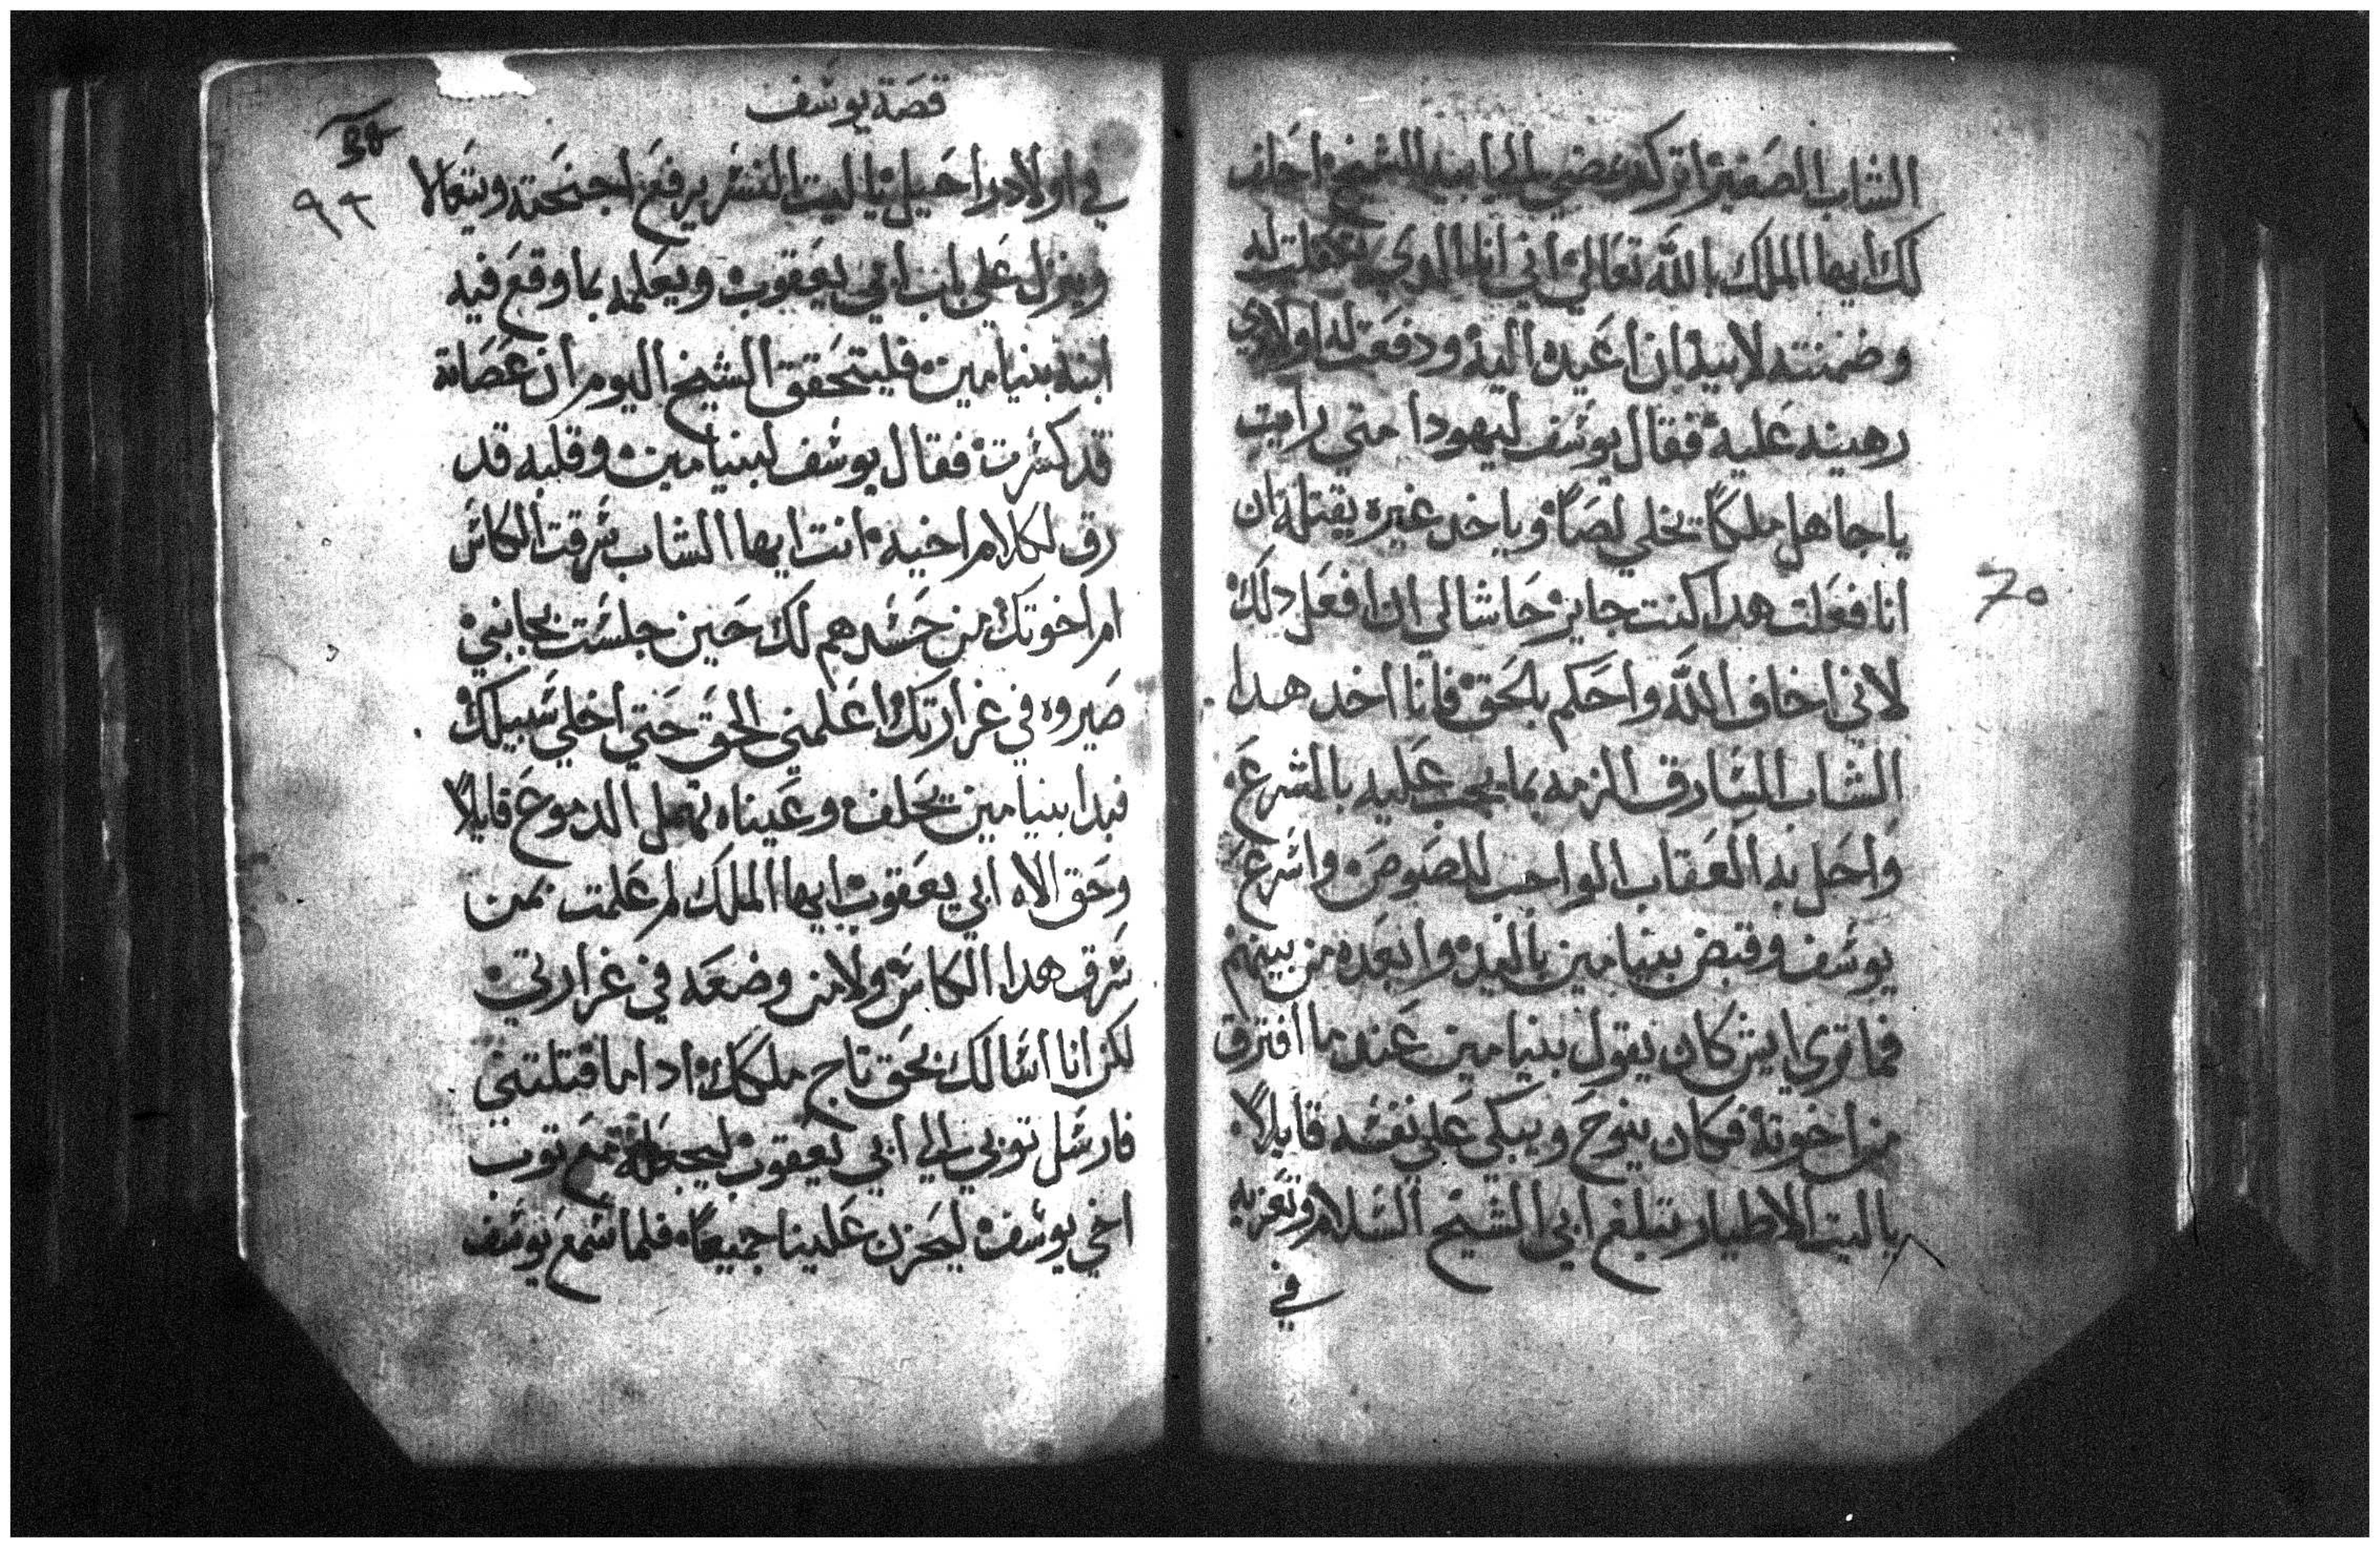 الشاب الصغير اتركه يمضي الي ابيه الشيخ احلف
لك ايها الملك بالله تعالي اني انا الدي تكفلت له
وضمنته لابيه ان اعيده اليه ودفعت له اولادي
رهينه عليه فقال يوسف ليهودا متي رايت
يا جاهل ملكاً يخلي لصاً وياخد غيره يقتله ان
انا فعلت هدا كنت جاير حاشا لي ان افعل دلك
لاني اخاف الله واحكم بالحق فانا اخد هدا
الشاب السارق الزمه بما يجب عليه بالشرع
واحل به العقاب الواجب للصوص واسرع
يوسف وقبض بنيامين باليد وابعده من بينهم
فما تري ايش كان يقول بنيامين عند ما افترق
من اخوته فكان ينوح ويبكي علي نفسه قايلاً
ياليت الاطيار تبلغ ابي الشيخ السلام وتعزيه
في
70
قصة يوسف
٩٢
في اولاد راحيل ياليت النسر يرفع اجنحته ويتعالا
وينزل علي باب ابي يعقوب ويعلمه بما وقع فيه
ابنه بنيامين فليتحقق الشيخ اليوم ان عصاته
قد كسرت فقال يوسف لبنيامين وقلبه قد
رق لكلام اخيه انت ايها الشاب سرقت الكاس
ام اخوتك من حسدهم لك حين جلست بجانبي
صيروه في غرارتك اعلمني الحق حتي اخلي سبيلك
فبدا بنيامين يحلف وعيناه تهمل الدموع قايلاً
وحق الاه ابي يعقوب ايها الملك لم علمت بمن
سرق هدا الكاس ولا من وضعه في غرارتي
لكن انا اسالك بحق تاج ملكك ادا ما قتلتني
فارسل توبي الي ابي يعقوب ليجعله مع توب
اخي يوسف ليحزن علينا جميعاً فلما سمع يوسف